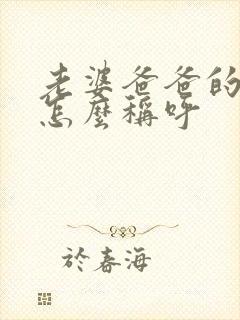 老婆爸爸的
怎麼稱呼
於春海